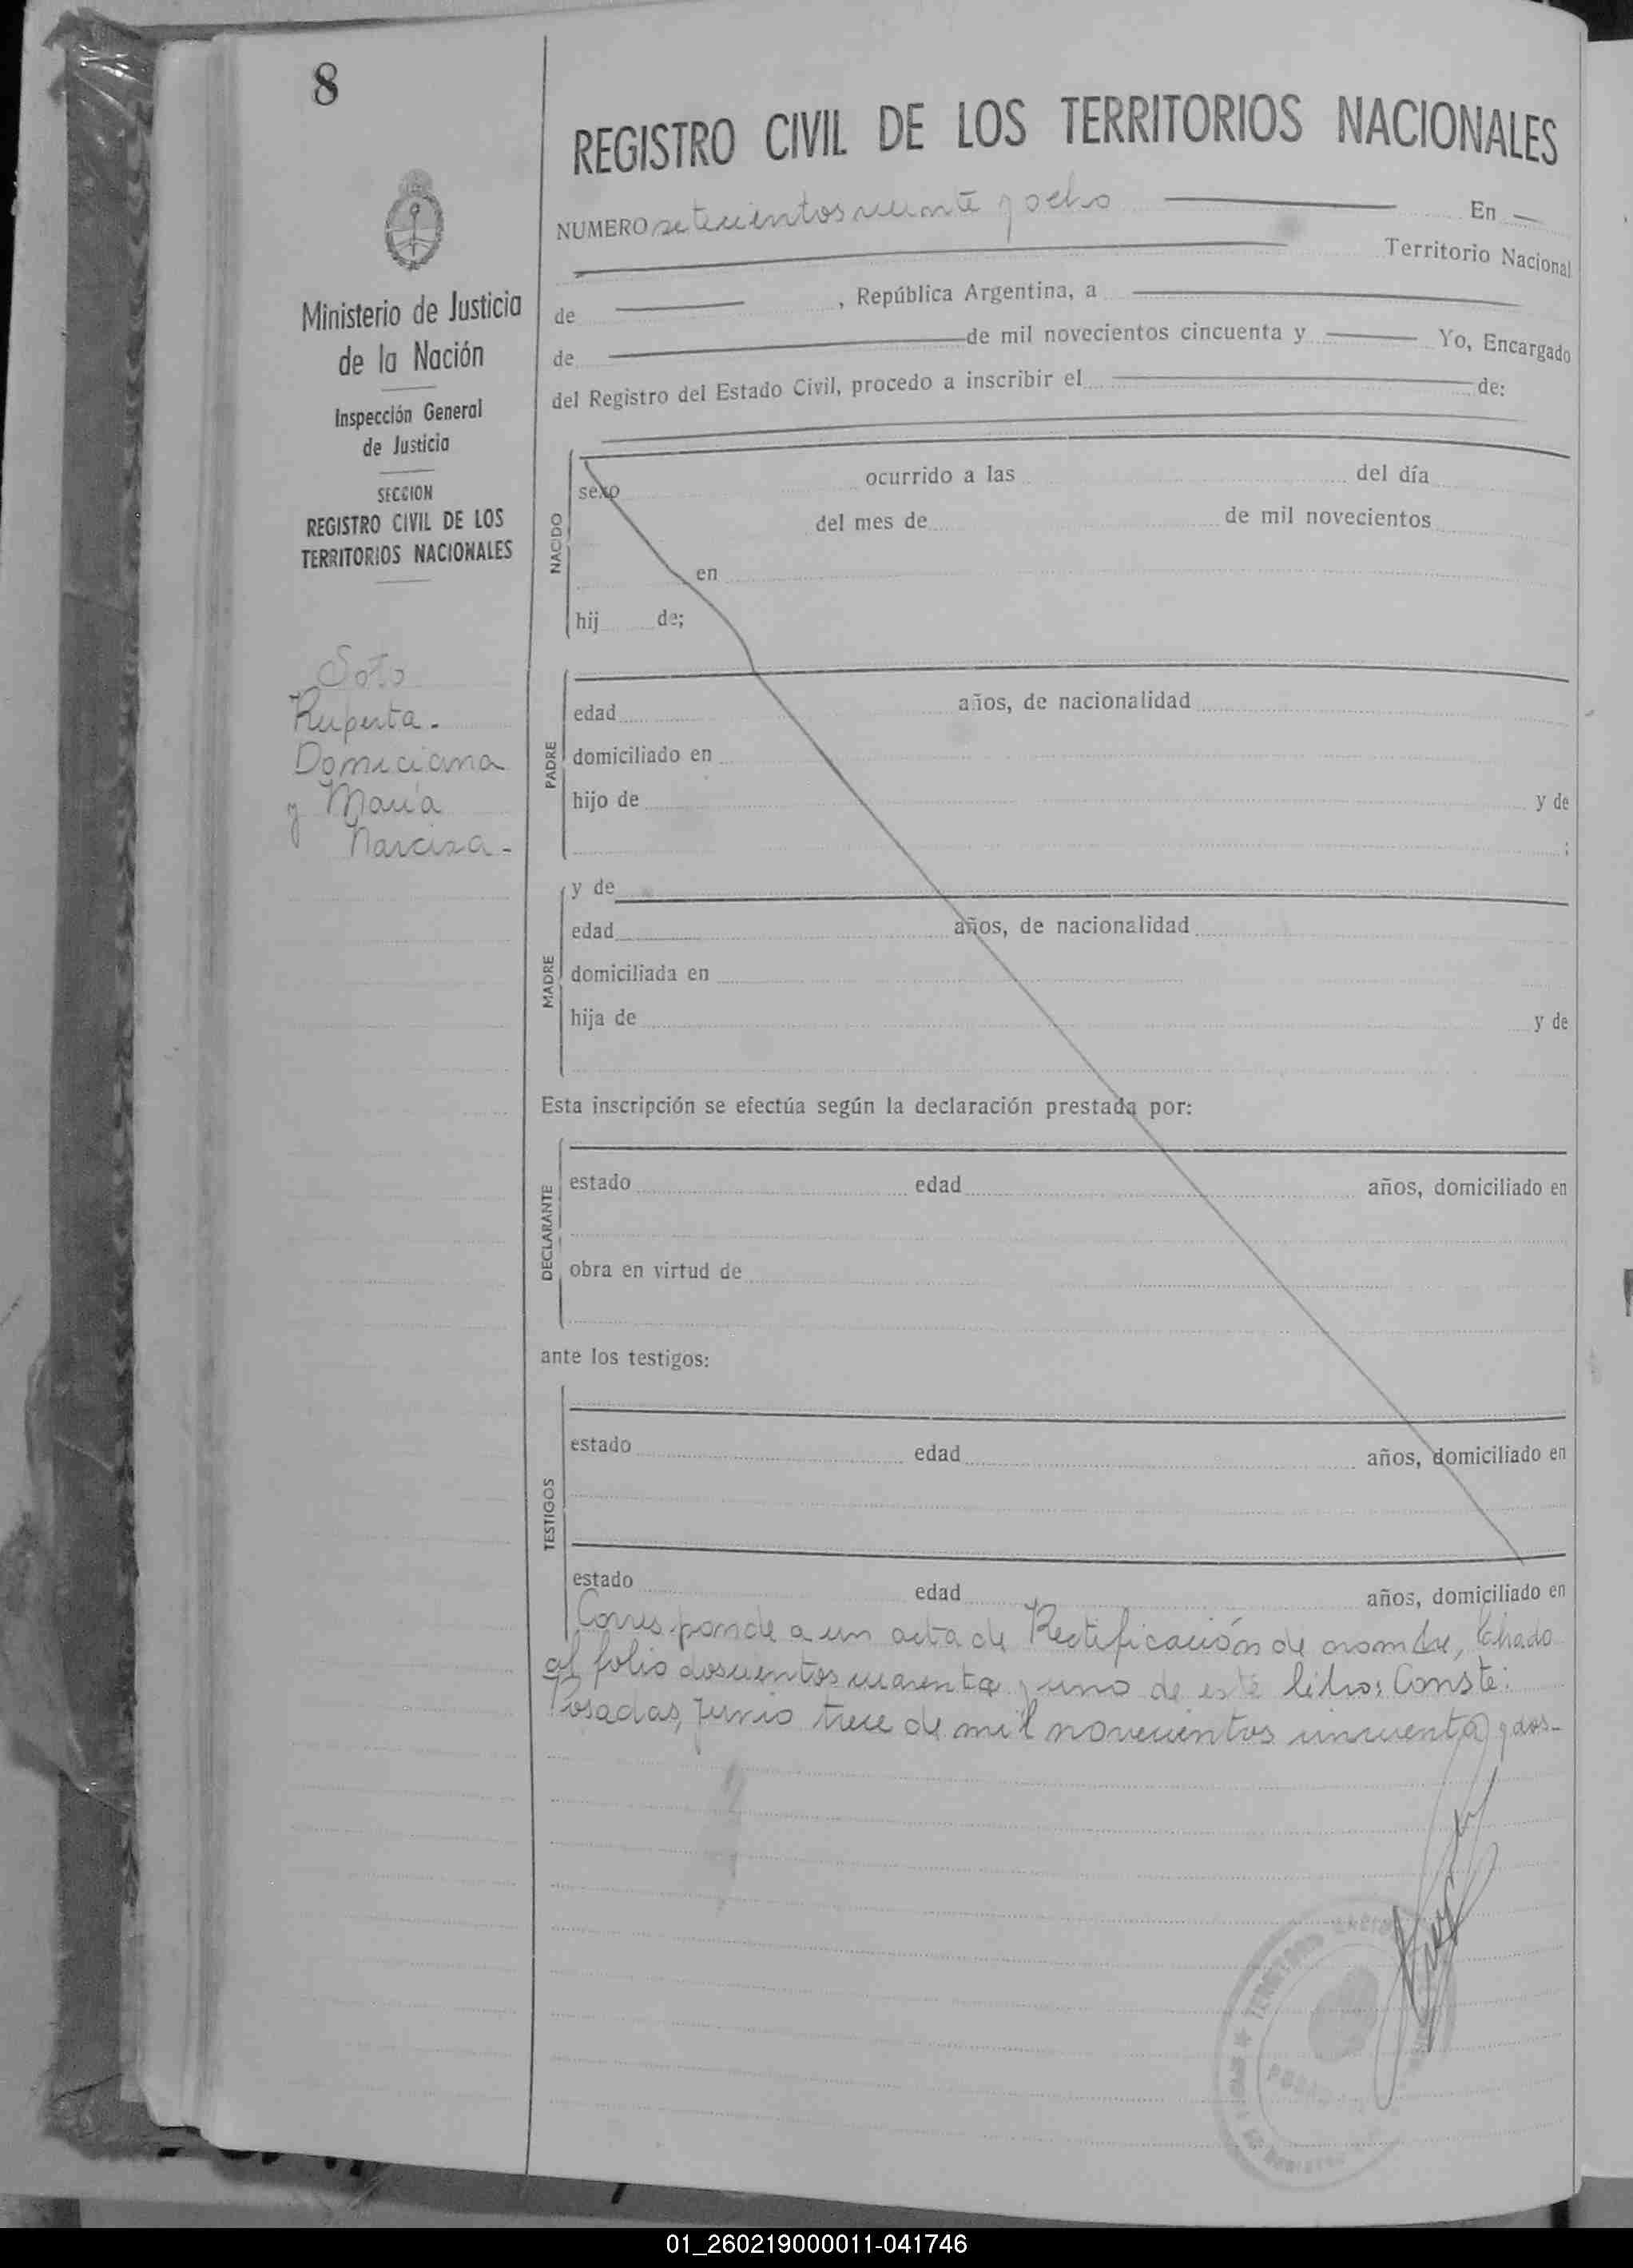 8
REGISTRO CIVIL DE LOS TERRITORIOS NACIONALES
NUMERO setecientos veinte y ocho En
Territorio Nacional
de , República Argentina, a
de de mil novecientos cincuenta y Yo, Encargado
del Registro del Estado Civil, procedo a inscribir el de:
Ministerio de Justicia
de la Nación
Inspección General
de Justicia
SECCION
REGISTRO CIVIL DE LOS
TERRITORIOS NACIONALES
Soto
Ruperta.
Domiciana
y María
Narcisa-
NACIDO
sexo ocurrido a las del día
del mes de de mil novecientos
en
hij de;
PADRE
edad años, de nacionalidad
domiciliado en
hijo de y de
;
MADRE
y de
edad años, de nacionalidad
domiciliada en
hija de y de
Esta inscripción se efectúa según la declaración prestada por:
DECLARANTE
estado edad años, domiciliado en
obra en virtud de
ante los testigos:
TESTIGOS
estado edad años, domiciliado en
estado edad años, domiciliado en
Corresponde a un acta de Rectificación de nombre,
al folio doscientos cuarenta y uno de este libro; Conste:
Posadas, Junio trece de mil novecientos cincuenta y dos-
01_260219000011-041746